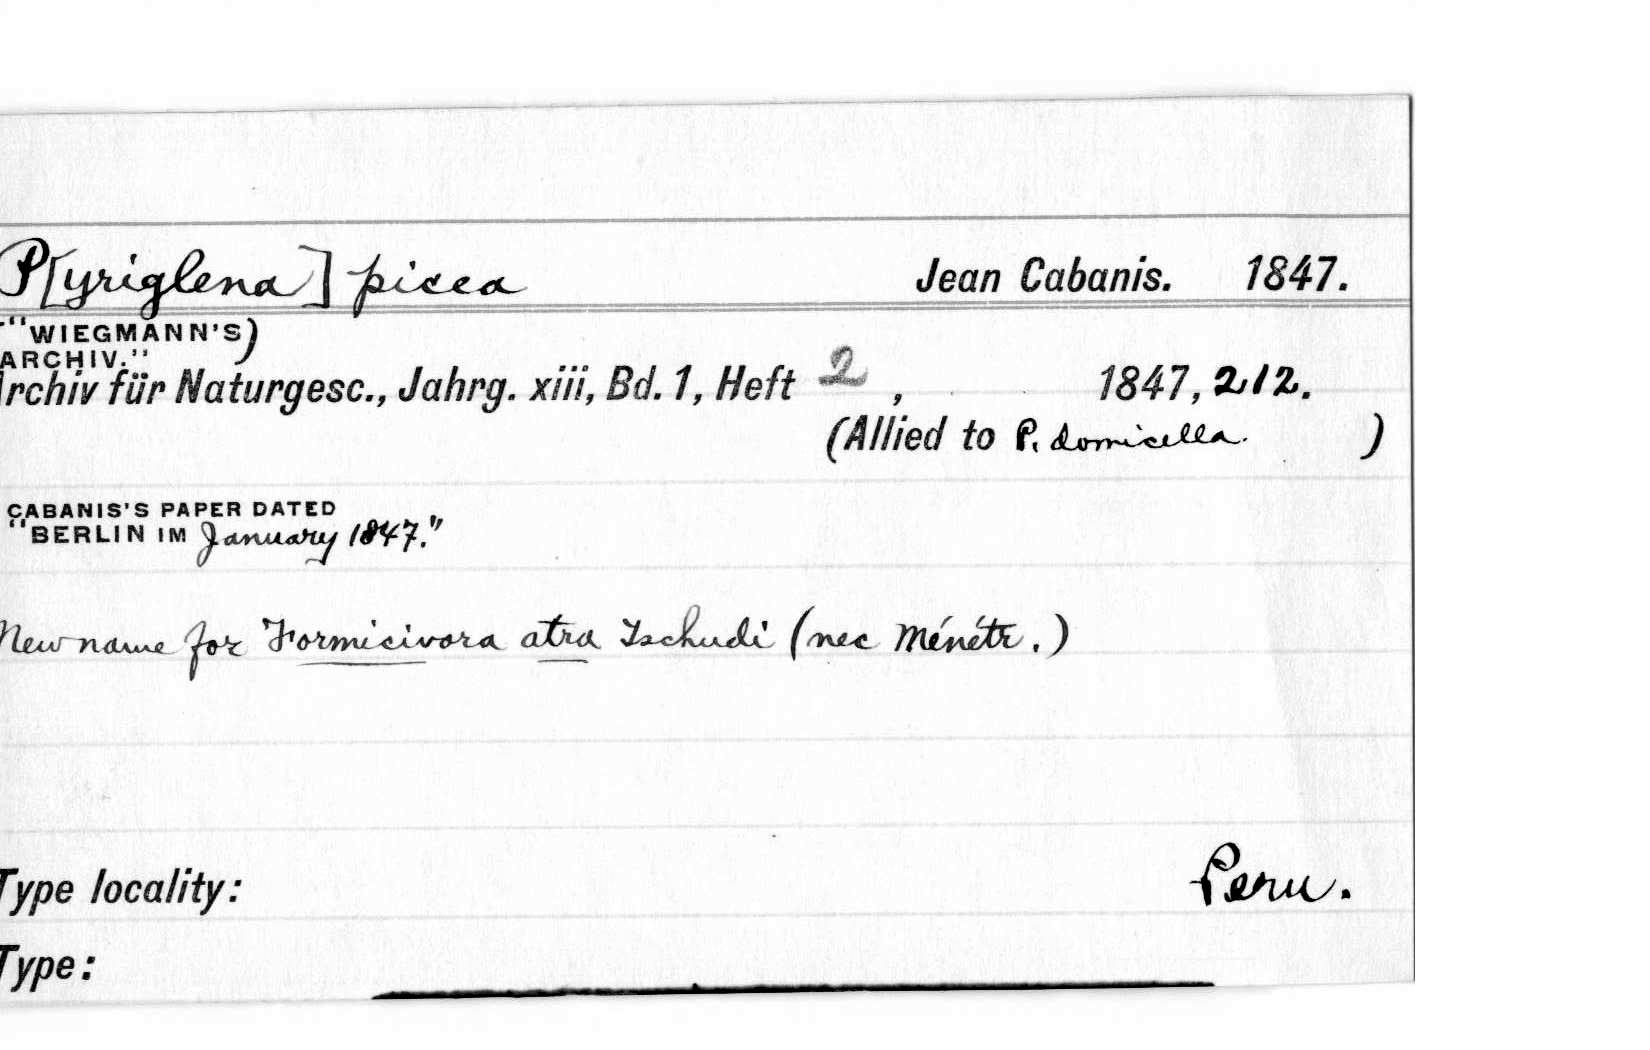 P[yriglena] picea Jean Cabanis. 1847.
"WIEGMANN'S)
ARCHIV."
Archiv für Naturgesc., Jahrg. xiii, Bd. 1, Heft 2, 1847, 212.
(Allied to P. domicella. )
CABANIS'S PAPER DATED
"BERLIN IM January 1847."
New name for Formicivora atra Tschudi (nec Ménétr.)
Type locality: Peru.
Type: